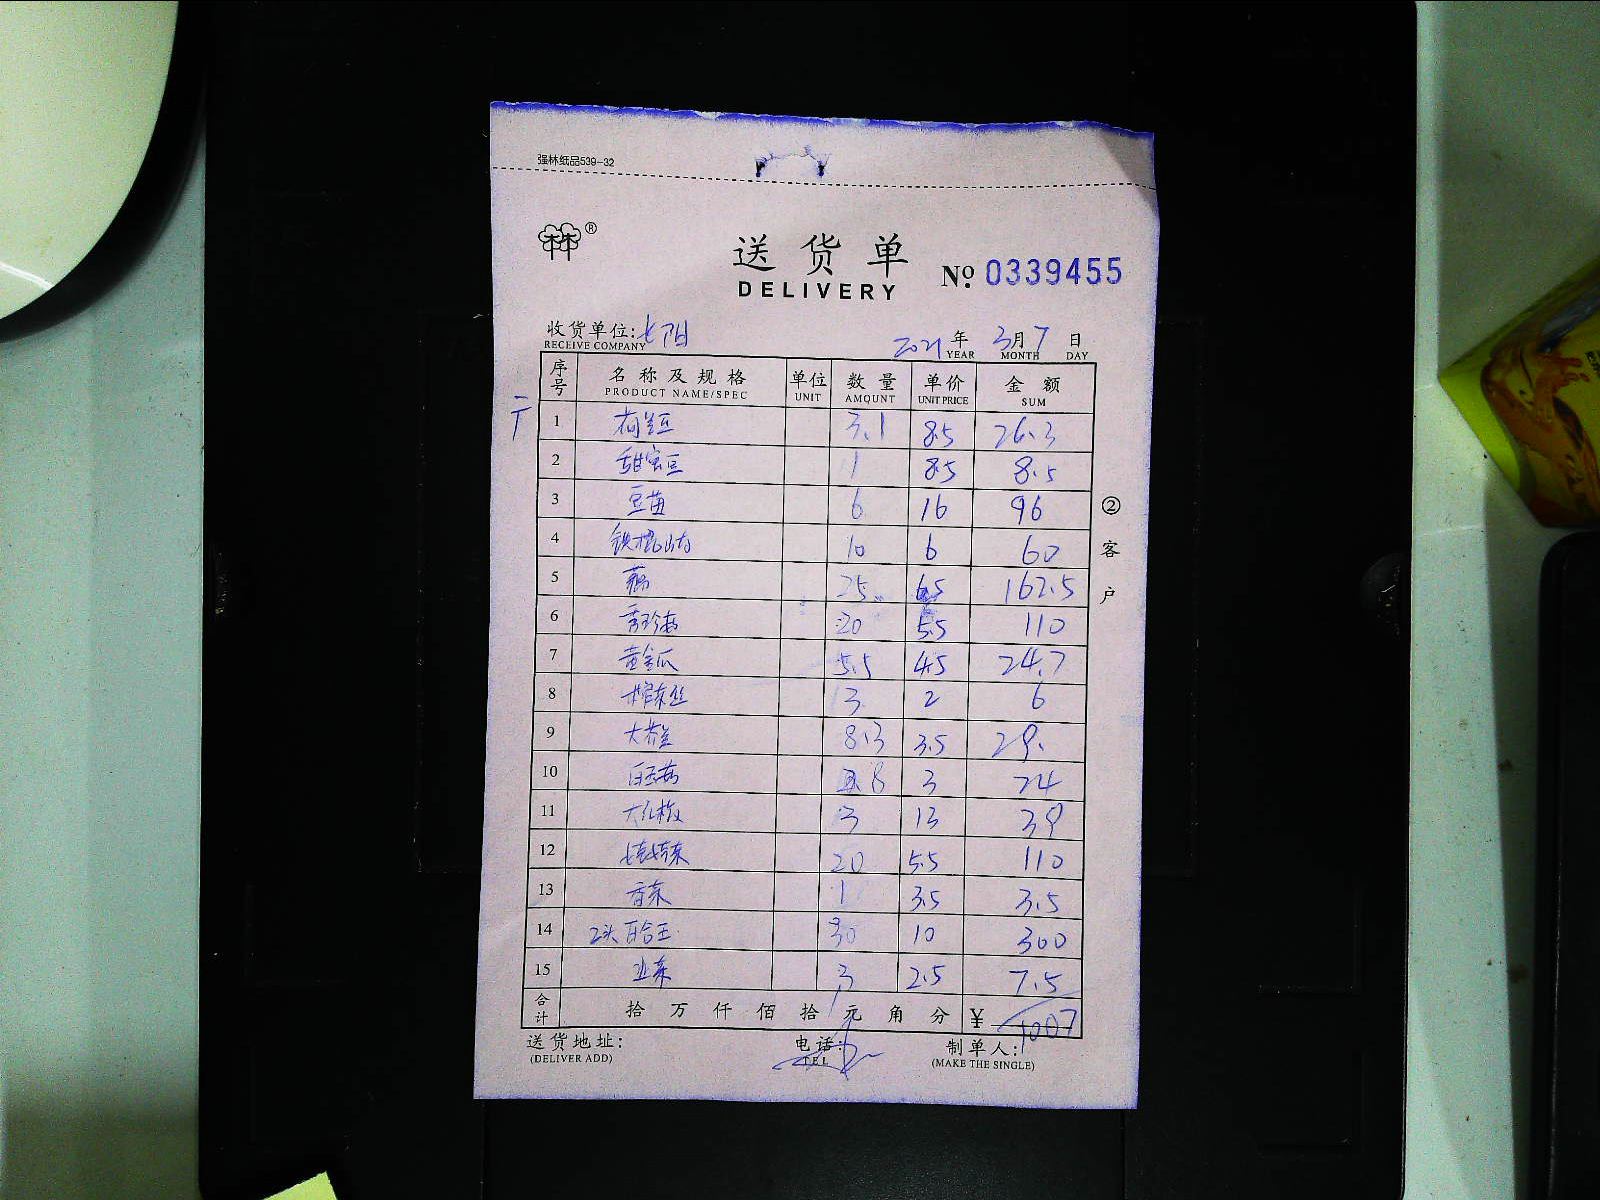 强林纸品539-32
林林®
送货单
DELIVERY
No. 0339455
收货单位:七阳 2021年3月7日
RECEIVE COMPANY YEAR MONTH DAY
序号 名称及规格 单位 数量 单价 金额
PRODUCT NAME/SPEC UNIT AMOUNT UNIT PRICE SUM
1 荷兰豆 3.1 8.5 26.3
2 甜蜜豆 1 8.5 8.5
3 豆苗 6 16 96
4 铁棍山药 10 6 60
5 藕 25 6.5 162.5
6 秀珍菇 20 5.5 110
7 黄金瓜 5.5 4.5 24.7
8 榨菜丝 3 2 6
9 大养兰 8.3 3.5 29.
10 白玉菇 8 3 24
11 大红椒 3 13 39
12 20 5.5 110
13 香菜 1 3.5 3.5
14 2头百合王 30 10 300
15 韭菜 3 2.5 7.5
合计 拾万仟佰拾元角分 ¥1007
送货地址: 电话: 制单人:
(DELIVER ADD) TEL (MAKE THE SINGLE)
②客户